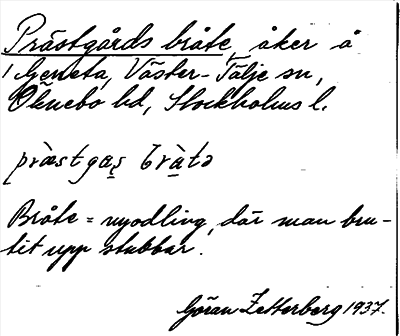 Prästgårds bråte, åker å
Geneta, Väster-Tälje sn,
Öknebo hd, Stockholms l.
præstgaṣ bràtə
Bråte = nyodling, där man bru-
tit upp stubbar.
Göran Zetterberg 1937.